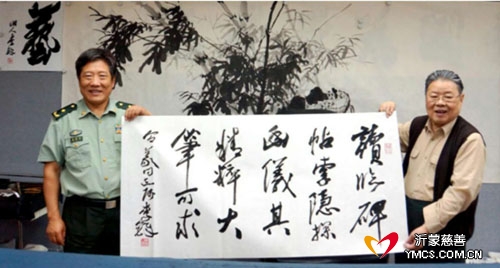 藝
讀临碑
帖索隐探
幽儀其
精粹大
筆可求
沂蒙慈善
YMCS.COM.CN